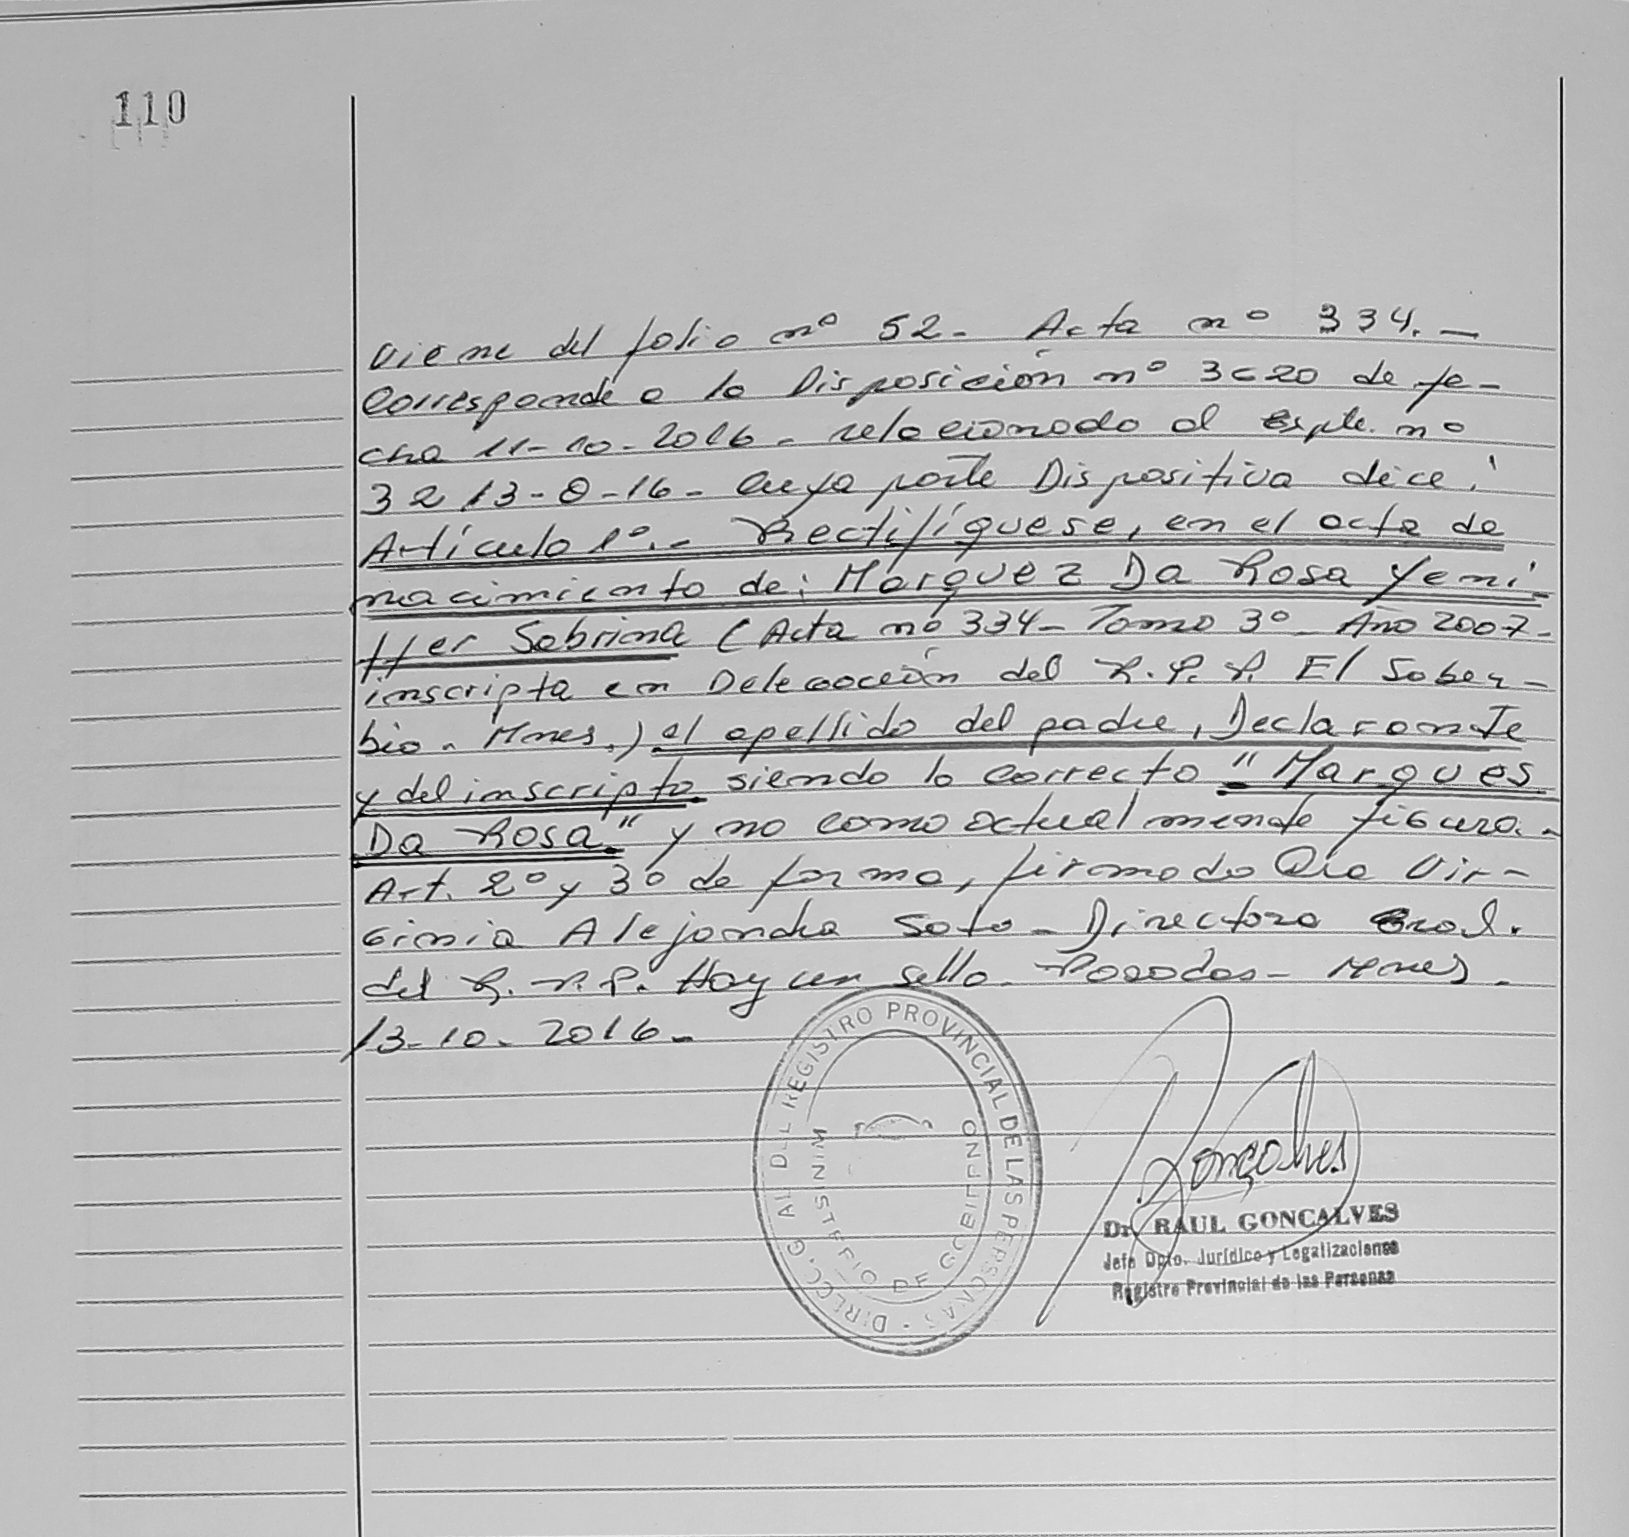 110
Viene del folio nº 52- Acta nº 334.-
Corresponde a la Disposición nº 3020 de fe-
cha 11-10-2016- relacionado al Expte. nº
3213-O-16- Cuya parte Dispositiva dice:
Artículo 1º.- Rectifíquese, en el acta de
nacimiento de: Marquez Da Rosa Yeni-
ffer Sabrina (Acta nº 334- Tomo 3º- Año 2007-
inscripta en Delegación del R.P.P. El Sober-
bio- Mnes.) el apellido del padre, Declarante
y del inscripto siendo lo correcto "Marques
Da Rosa" y no como actualmente figura.-
Art. 2º y 3º de forma, firmado Dra Vir-
ginia Alejandra Soto- Directora Gral.
del R.P.P. Hay un sello- Posadas- Mnes-
13-10-2016-
DIRECC. GRAL DEL REGISTRO PROVINCIAL DE LAS PERSONAS -
MINISTERIO DE GOBIERNO
Gonçalves
Dr. RAUL GONCALVES
Jefe Dpto. Jurídico y Legalizaciones
Registro Provincial de las Personas